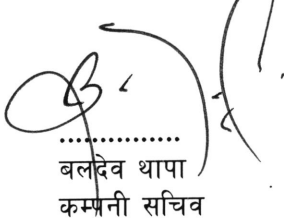 ..................
बलदेव थापा
कम्पनी सचिव